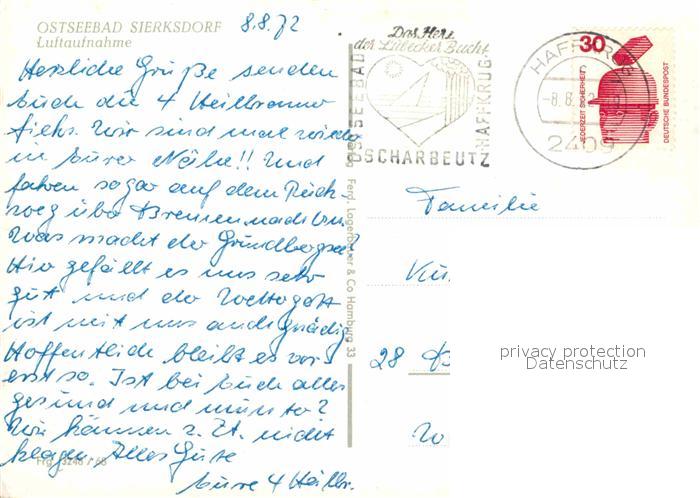 OSTSEEBAD SIERKSDORF 8.8.72
Luftaufnahme
Herzliche Grüße senden
Euch die 4 Heilbronner
Fiehr. Wir sind mal wieder
in Eurer Nähe!! Und
fahren sogar auf dem Rück-
weg über Bremen nach
Was macht der Grundbergsee?
Hier gefällt es uns sehr
gut und der Wettergott
ist mit uns auch gnädig
Hoffentlich bleibt es vor-
erst so. Ist bei Euch alles
gesund und munter?
Wir können z. Zt. nicht
klagen. Alles Gute
Eure 4 Heilbr.
Frg. 3248 / 68
Ferd. Lagerbauer & Co Hamburg 33
Das Herz
der Lübecker Bucht
OSTSEEBAD
HAFFKRUG
SCHARBEUTZ
HAFFKRUG
-8.8.
2409
30
JEDERZEIT SICHERHEIT
DEUTSCHE BUNDESPOST
Familie
28 B
privacy protection
Datenschutz